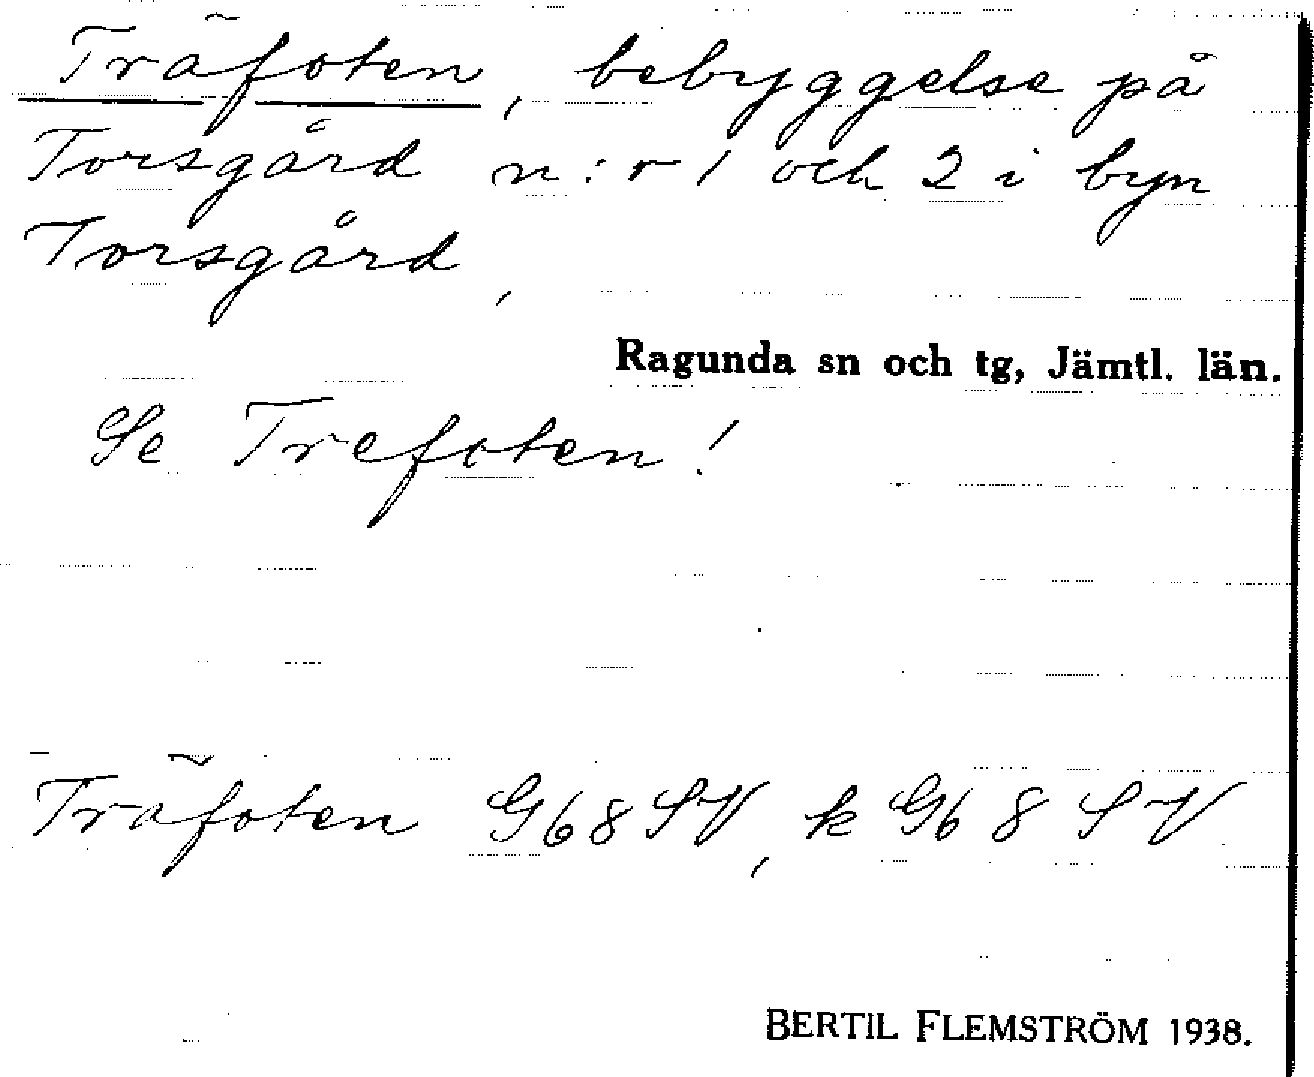 Träfoten, bebyggelse på
Torsgård n:r 1 och 2 i byn
Torsgård,
Ragunda sn och tg, Jämtl. län.
Se Trefoten!
Träfoten G68SV, k G68SV
BERTIL FLEMSTRÖM 1938.